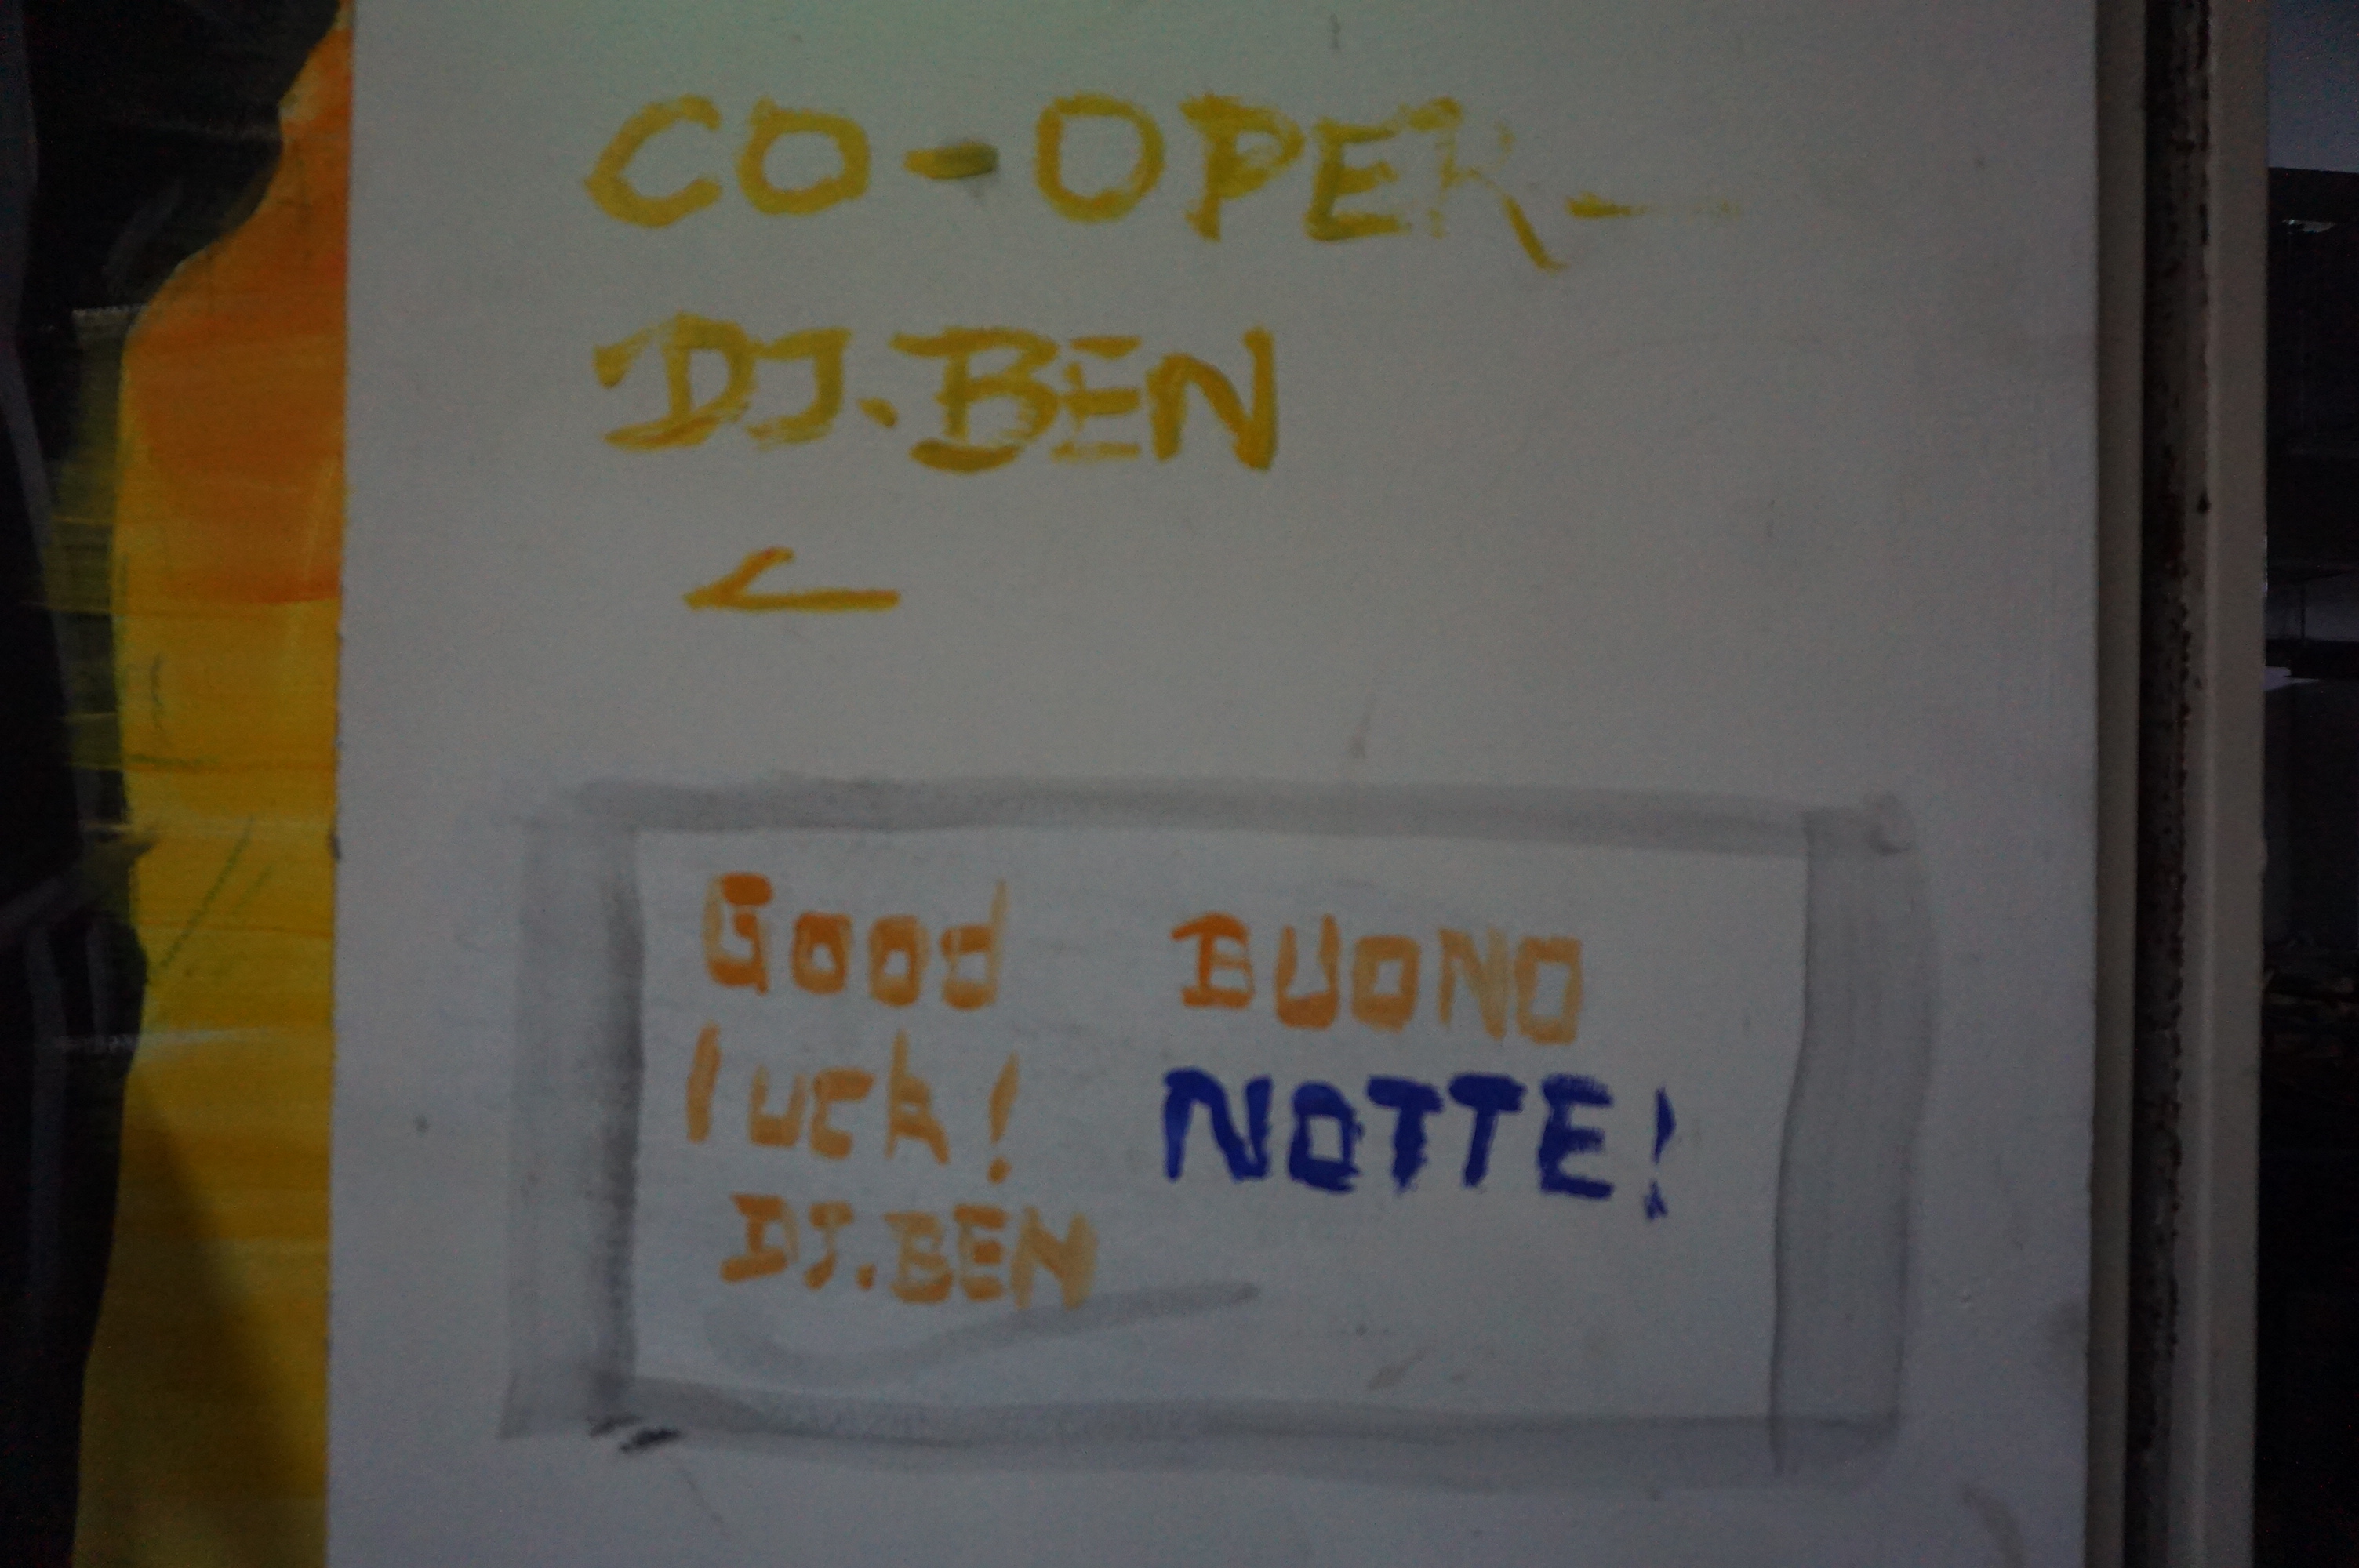 CO-OPER-
DJ.BEN
Good
luck!
DJ.BEN
BUONO
NOTTE!